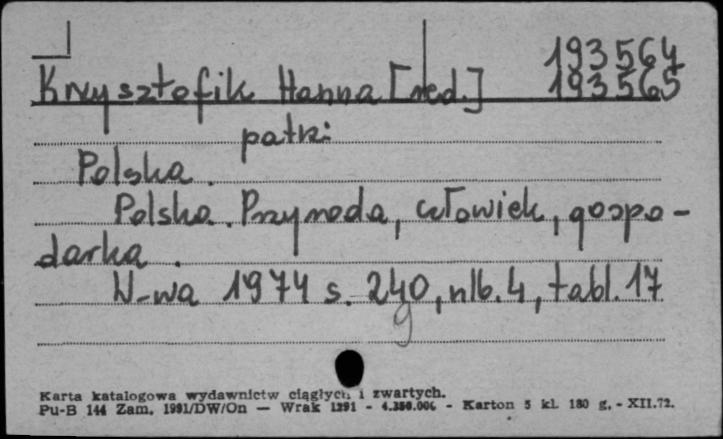 193564
Krzysztofik Hanna [red.] 193565
patrz:
Polska.
Polska. Przyroda, człowiek, gospo-
darka.
W-wa 1974 s. 240, nlb. 4, tabl. 17
9
Karta katalogowa wydawnictw ciągłych i zwartych.
Pu-B 144 Zam. 1991/DW/On — Wrak 1291 - 4.350.000 - Karton 5 kl. 180 g. - XII.72.